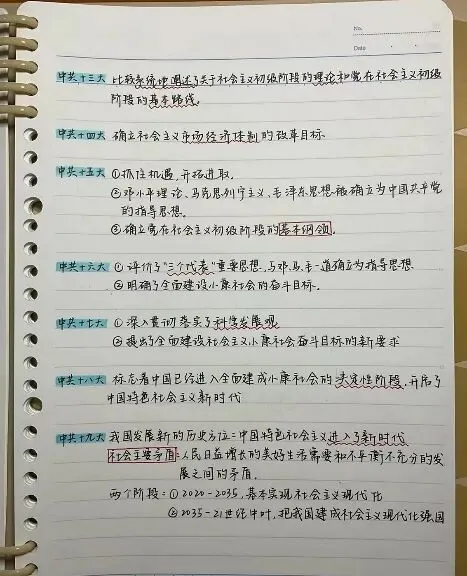 No.
Date
中共十三大 比较系统地阐述了关于社会主义初级阶段的理论和党在社会主义初级
阶段的基本路线。
中共十四大 确立社会主义市场经济体制的改革目标
中共十五大 ①抓住机遇,开拓进取。
②邓小平理论、马克思列宁主义、毛泽东思想被确立为中国共产党
的指导思想。
③确立党在社会主义初级阶段的基本纲领。
中共十六大 ①评价了“三个代表”重要思想,与邓、马、毛一道确立为指导思想
②明确了全面建设小康社会的奋斗目标。
中共十七大 ①深入贯彻落实了科学发展观
②提出了全面建设社会主义小康社会奋斗目标的新要求
中共十八大 标志着中国已经进入全面建成小康社会的决定性阶段,开启了
中国特色社会主义新时代
中共十九大 我国发展新的历史方位:中国特色社会主义进入了新时代
社会主要矛盾:人民日益增长的美好生活需要和不平衡不充分的发
展之间的矛盾。
两个阶段:①2020-2035,基本实现社会主义现代化
②2035-21世纪中叶,把我国建成社会主义现代化强国